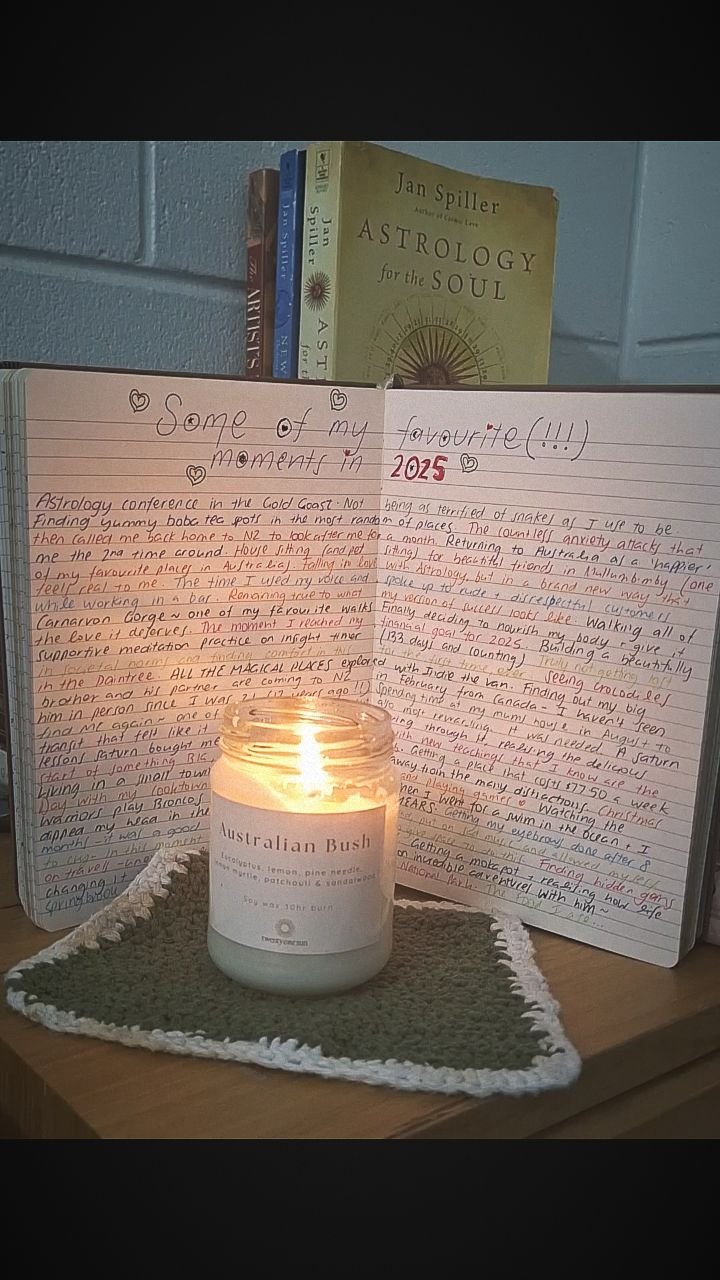 Jan Spiller
Author of Cosmic Love
ASTROLOGY
for the SOUL
Jan Spiller
AST
for t
Jan Spiller
NEW
The ARTIST'S
Some of my favourite (!!!)
moments in 2025
Astrology conference in the Gold Coast. Not being as terrified of snakes as I use to be.
Finding yummy boba tea spots in the most random of places. The countless anxiety attacks that
then called me back home to NZ to look after me for a month. Returning to Australia as a 'happier'
me the 2nd time around. House sitting (and pet sitting) for beautiful friends in Mullumbimby (one
of my favourite places in Australia). Falling in love with Astrology, but in a brand new way that
feels real to me. The time I used my voice and spoke up to rude + disrespectful customers
while working in a bar. Remaining true to what my version of success looks like. Walking all of
Carnarvon Gorge ~ one of my favourite walks. Finally deciding to nourish my body + give it
the love it deserves. The moment I reached my financial goal for 2025. Building a beautifully
supportive meditation practice on insight timer (133 days and counting). Truly not getting lost
in societal norms and finding comfort in this for the first time ever. Seeing crocodiles
in the Daintree. ALL THE MAGICAL PLACES explored with Indie the van. Finding out my big
brother and his partner are coming to NZ in February from Canada - I haven't seen
him in person since I was 21 (12 years ago!!) Spending time at my mums house in August to
find me again ~ one of also most rewarding. It was needed. A Saturn
transit that felt like it through it realising the delicious
lessons Saturn bought me with new teachings that I know are the
start of something BIG Getting a place that costs $77.50 a week
Living in a small town away from the many distractions. Christmas
Day with my Cooktown and playing games Watching the
Warriors play Broncos when I went for a swim in the ocean + I
dipped my head in the YEARS. Getting my eyebrows done after 8
months - it was a good
in this moment Finding hidden gems
on travel Getting a mokopot + realising how life
changing it an incredible adventure with him ~
Springbrook National Park. The food I ate...
Australian Bush
Eucalyptus, lemon, pine needle,
myrtle, patchouli & sandalwood
Soy wax 30hr burn
twentyonesun